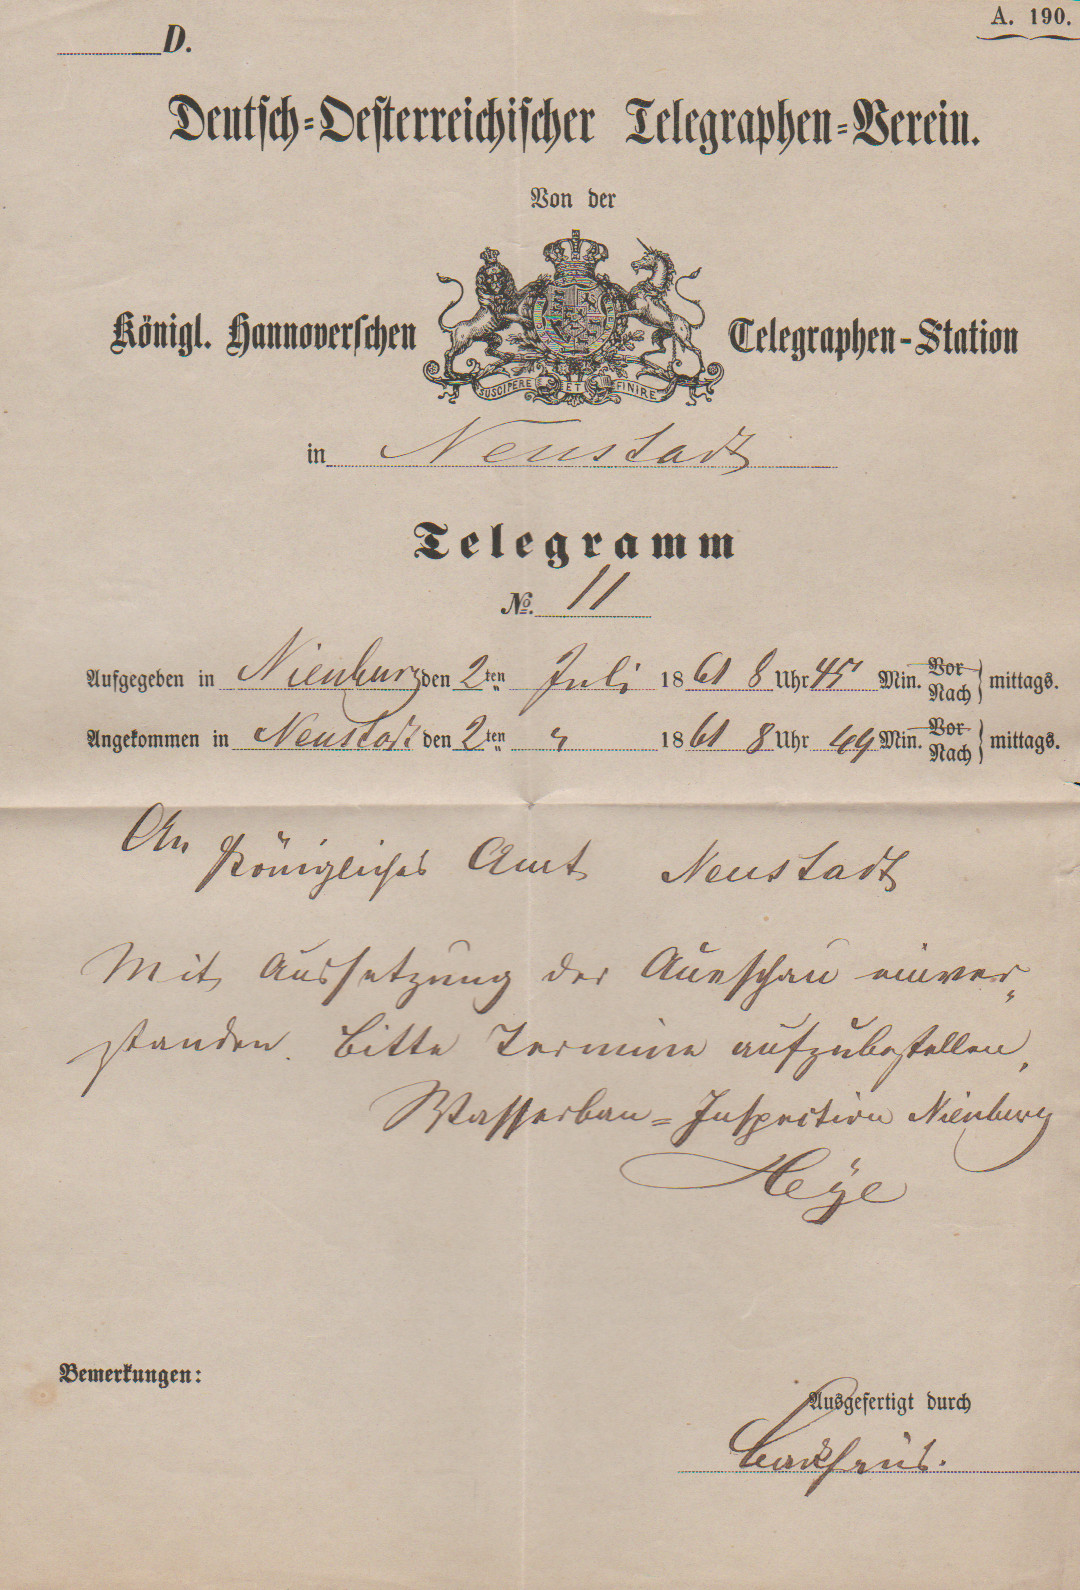 A. 190.
D.
Deutsch-Oesterreichischer Telegraphen-Verein.
Von der
Königl. Hannoverschen Telegraphen-Station
SUSCIPERE ET FINIRE
in Neustadt
Telegramm
No. 11
Aufgegeben in Nienburg den 2ten Juli 1861 8 Uhr 45 Min. Vor Nach } mittags.
Angekommen in Neustadt den 2ten " 1861 8 Uhr 49 Min. Vor Nach } mittags.
An
Königliches Amt Neustadt
Mit Aussetzung der Aueschau einver-
standen. Bitte Termine aufzubestellen,
Wasserbau-Inspection Nienburg
Heÿe
Bemerkungen:
Ausgefertigt durch